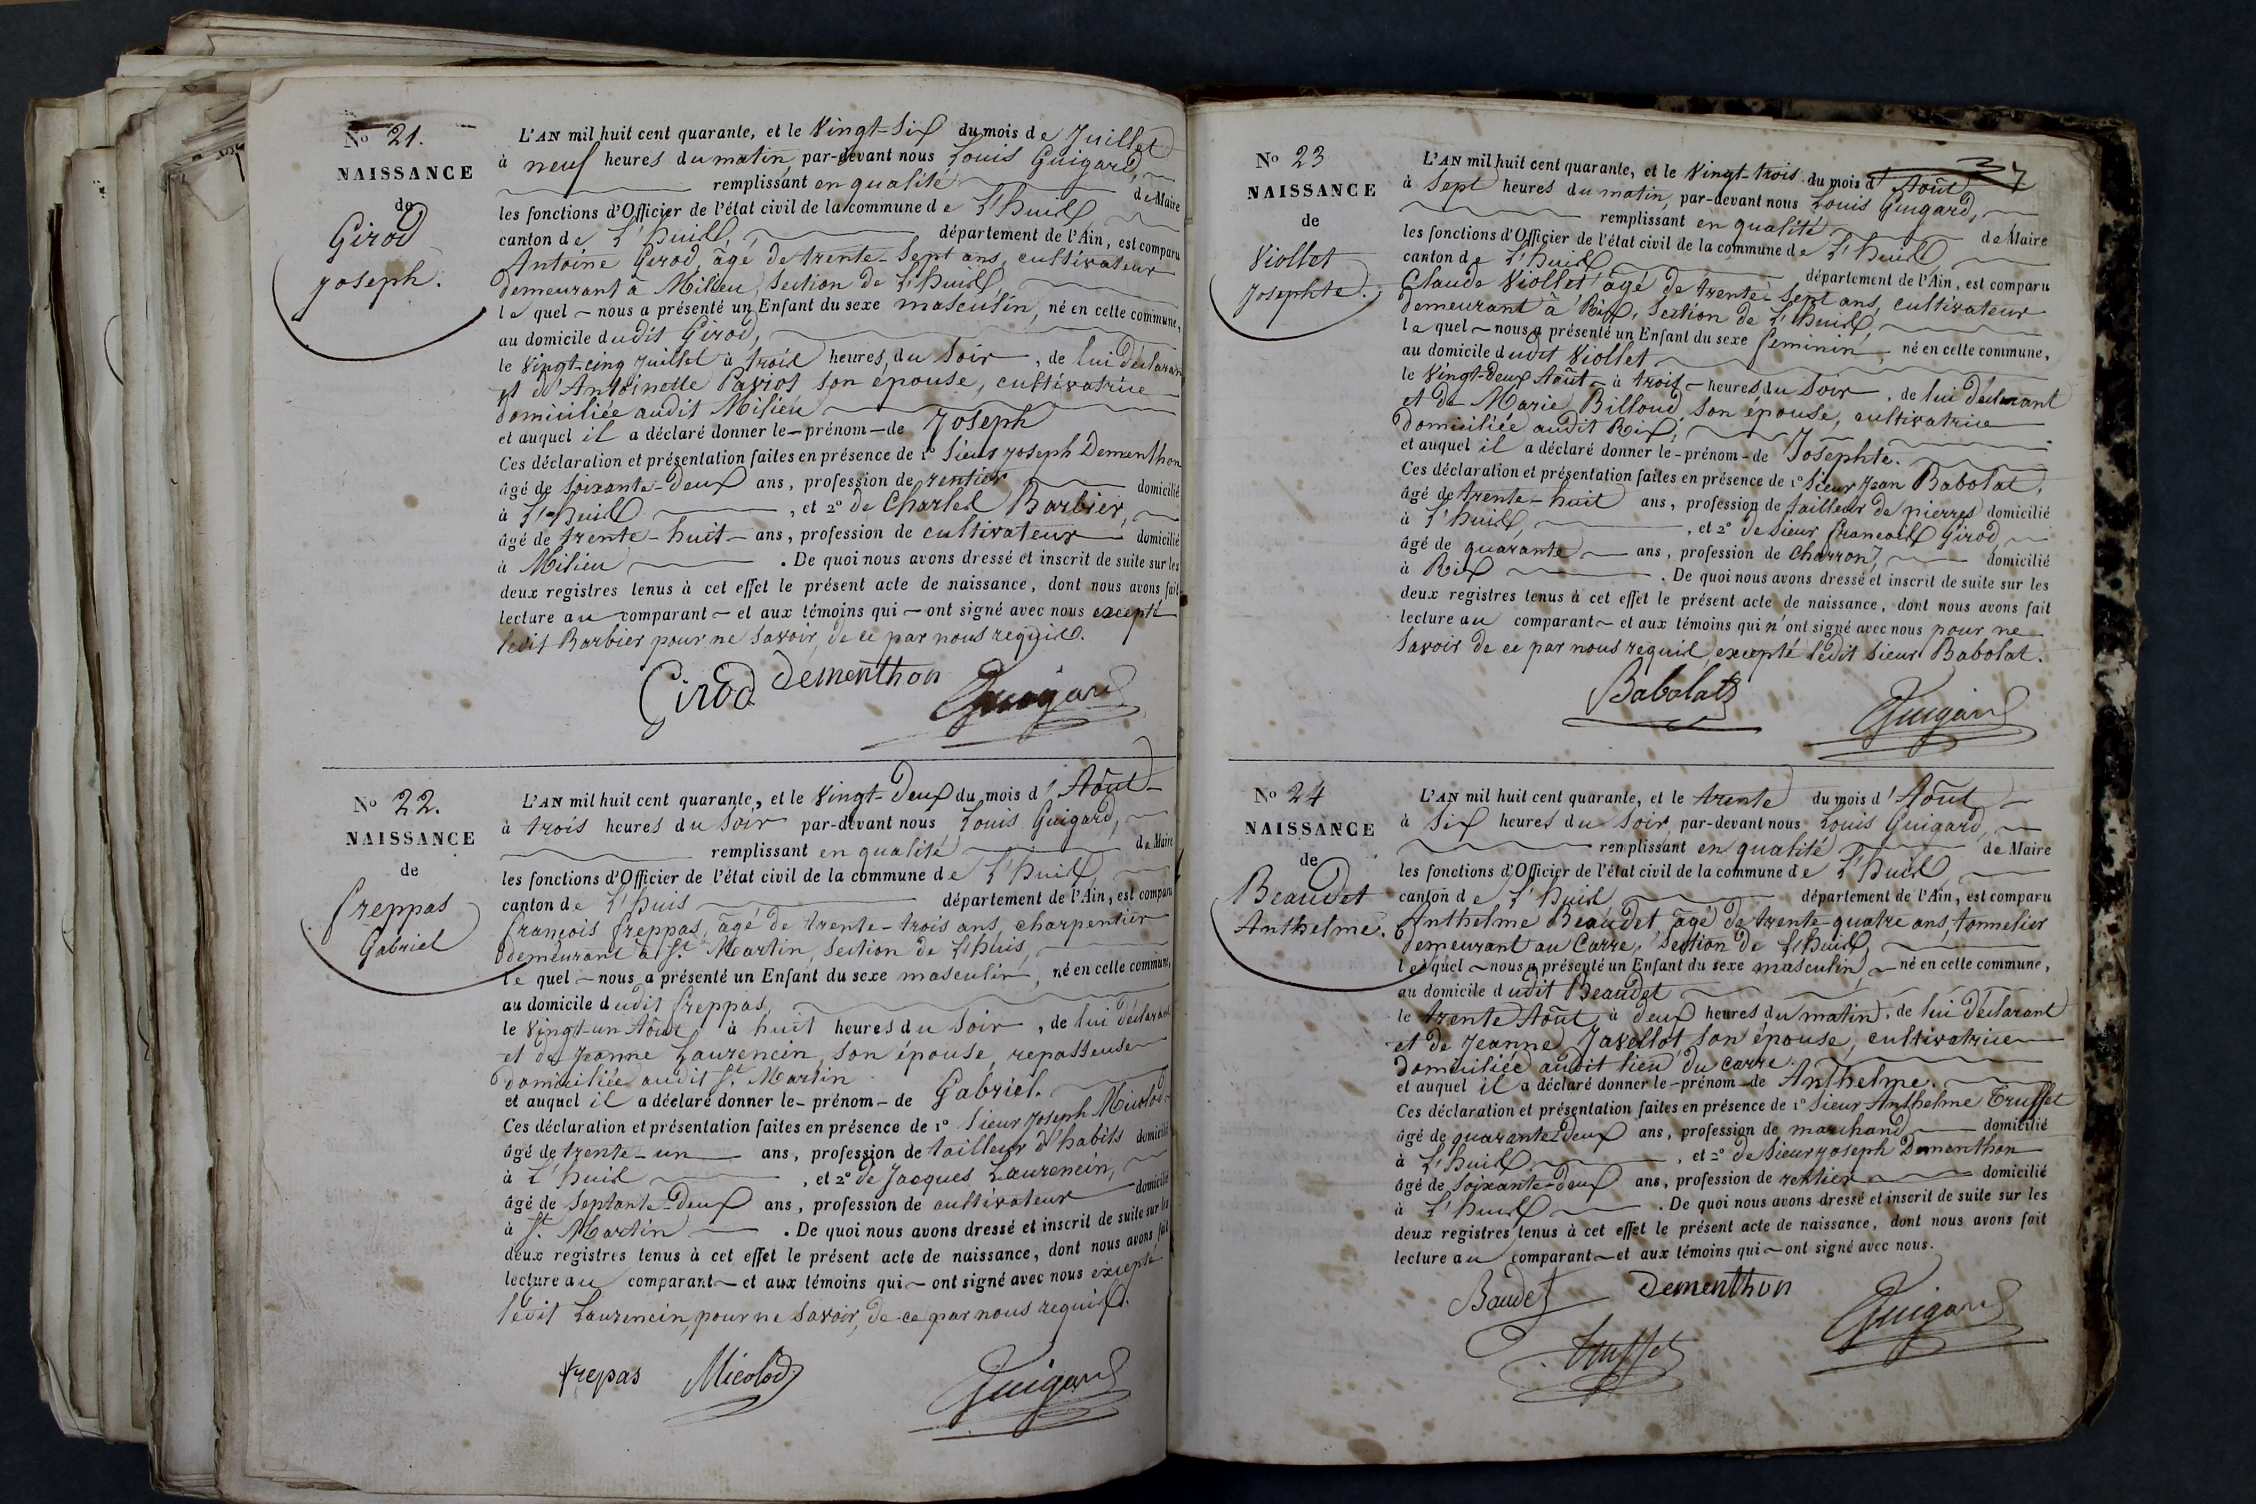 No 21.
NAISSANCE
de
Girod
Joseph.
L'AN mil huit cent quarante, et le Vingt-Six du mois de Juillet
à neuf heures du matin, par-devant nous Louis Guigard,
remplissant en qualité de Maire
les fonctions d'Officier de l'état civil de la commune de L'huis,
canton de L'huis, département de l'Ain, est comparu
Antoine Girod, âgé de trente-Sept ans, cultivateur
demeurant à Milieu, Section de L'huis,
le quel nous a présenté un Enfant du sexe masculin, né en cette commune,
au domicile dudit Girod,
le Vingt-cinq Juillet à trois heures, du Soir, de lui déclarant
et d'Antoinette son épouse, cultivatrice
domiciliée audit Milieu
et auquel il a déclaré donner le prénom de Joseph
Ces déclaration et présentation faites en présence de 1° Sieur Joseph Dementhon
âgé de Soixante-Deux ans, profession de rentier domicilié
à L'huis, et 2° de Charles Barbier,
âgé de trente-huit ans, profession de cultivateur domicilié
à Milieu. De quoi nous avons dressé et inscrit de suite sur les
deux registres tenus à cet effet le présent acte de naissance, dont nous avons fait
lecture au comparant et aux témoins qui ont signé avec nous excepté
ledit Barbier pour ne Savoir, de ce par nous requis.
Girod Dementhon Guigard
No 22.
NAISSANCE
de
freppas
Gabriel
L'AN mil huit cent quarante, et le Vingt-Deux du mois d'Août
à trois heures du Soir par-devant nous Louis Guigard,
remplissant en qualité de Maire
les fonctions d'Officier de l'état civil de la commune de L'huis,
canton de L'huis département de l'Ain, est comparu
françois freppas, âgé de trente-trois ans, charpentier
demeurant à St. Martin, Section de L'huis,
le quel nous a présenté un Enfant du sexe masculin, né en cette commune,
au domicile dudit freppas,
le Vingt-un Août à huit heures du Soir, de lui déclarant
et de Jeanne Laurencin, son épouse, repasseuse
domiciliée audit St. Martin
et auquel il a déclaré donner le prénom de Gabriel.
Ces déclaration et présentation faites en présence de 1° Sieur Joseph
âgé de trente-un ans, profession de tailleur d'habits domicilié
à L'huis, et 2° de Jacques Laurencin,
âgé de Septante-Deux ans, profession de cultivateur domicilié
à St. Martin. De quoi nous avons dressé et inscrit de suite sur les
deux registres tenus à cet effet le présent acte de naissance, dont nous avons fait
lecture au comparant et aux témoins qui ont signé avec nous excepté
ledit Laurencin, pour ne Savoir, de ce par nous requis.
frepas Micolod Guigard
37
No 23
NAISSANCE
de
Viollet
Josephte.
L'AN mil huit cent quarante, et le Vingt-trois du mois d'Août
à Sept heures du matin, par-devant nous Louis Guigard,
remplissant en qualité de Maire
les fonctions d'Officier de l'état civil de la commune de L'huis,
canton de L'huis département de l'Ain, est comparu
Claude Viollet âgé de trente-Sept ans, cultivateur
demeurant à Rix, Section de L'huis,
le quel nous a présenté un Enfant du sexe féminin, né en cette commune,
au domicile dudit Viollet
le Vingt-Deux Août à trois heures, du Soir, de lui déclarant
et de Marie Billoud, son épouse, cultivatrice
domiciliée audit Rix,
et auquel il a déclaré donner le prénom de Josephte.
Ces déclaration et présentation faites en présence de 1° Sieur Jean Babolat,
âgé de trente-huit ans, profession de tailleur de pierres domicilié
à L'huis, et 2° de Sieur françois Girod
âgé de quarante ans, profession de Charron, domicilié
à Rix. De quoi nous avons dressé et inscrit de suite sur les
deux registres tenus à cet effet le présent acte de naissance, dont nous avons fait
lecture au comparant et aux témoins qui n'ont signé avec nous pour ne
Savoir de ce par nous requis, excepté ledit Sieur Babolat.
Babolat Guigard
No 24
NAISSANCE
de
Beaudet
Anthelme.
L'AN mil huit cent quarante, et le trente du mois d'Août
à Six heures du Soir, par-devant nous Louis Guigard,
remplissant en qualité de Maire
les fonctions d'Officier de l'état civil de la commune de L'huis,
canton de L'huis, département de l'Ain, est comparu
Anthelme Beaudet, âgé de trente-quatre ans, tonnelier
demeurant au Carre, Section de L'huis,
le quel nous a présenté un Enfant du sexe masculin, né en cette commune,
au domicile dudit Beaudet
le trente Août à deux heures, du matin, de lui déclarant
et de Jeanne Javellot son épouse, cultivatrice
domiciliée audit lieu du Carre
et auquel il a déclaré donner le prénom de Anthelme.
Ces déclaration et présentation faites en présence de 1° Sieur Anthelme Truffet
âgé de quarante-deux ans, profession de marchand domicilié
à L'huis, et 2° de Sieur Joseph Dementhon
âgé de Soixante-deux ans, profession de rentier domicilié
à L'huis. De quoi nous avons dressé et inscrit de suite sur les
deux registres tenus à cet effet le présent acte de naissance, dont nous avons fait
lecture au comparant et aux témoins qui ont signé avec nous.
Baudet Dementhon Guigard
truffet